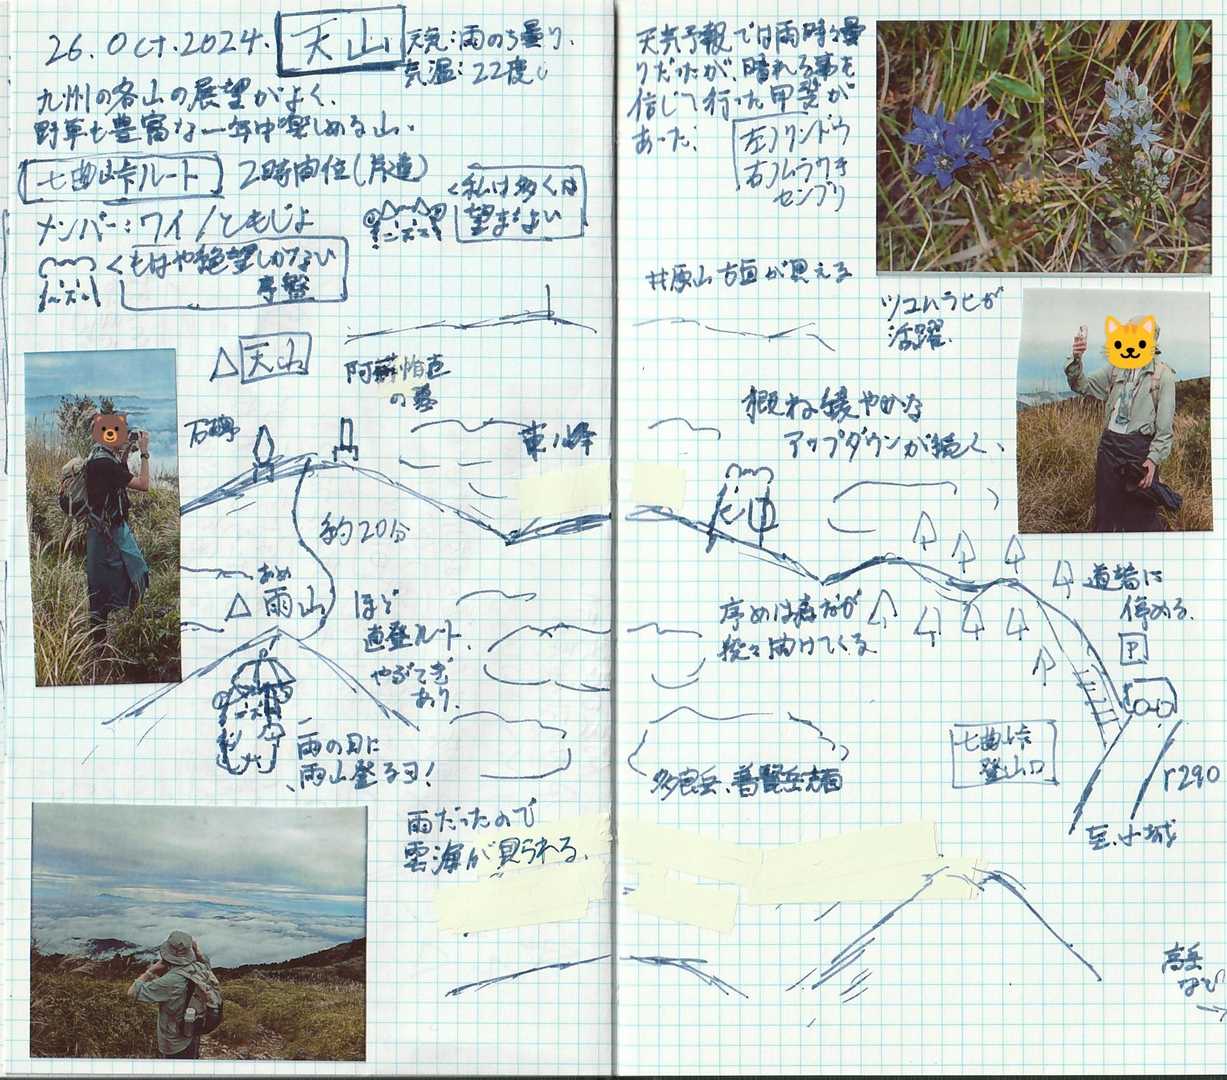 26. Oct. 2024.
天山
天気：雨のち曇り.
気温：22度。
九州の各山の展望がよく、
野草も豊富な一年中楽しめる山.
七曲峠ルート
2時間位(片道)
メンバー：ワイ/ともじょ
私は多くは
望まない
もはや絶望しかない
△天山
石碑
約20分
あめ
△雨山
ほぼ
直登ルート.
やぶこぎ
あり.
雨の日に
雨山登る日!
雨だったので
雲海が見られる.
天気予報では雨時々曇
りだったが、晴れる事を
信じて行った甲斐が
あった.
左)リンドウ
右)ムラサキ
センブリ
井原山方面が見える
ツユハラヒが
活躍.
概ね緩やかな
アップダウンが続く、
序めは森だが
段々開けてくる
道沿に
停める.
P
七曲峠
登山口
r290
至.小城
多良岳、普賢岳方面
高岳
など
→